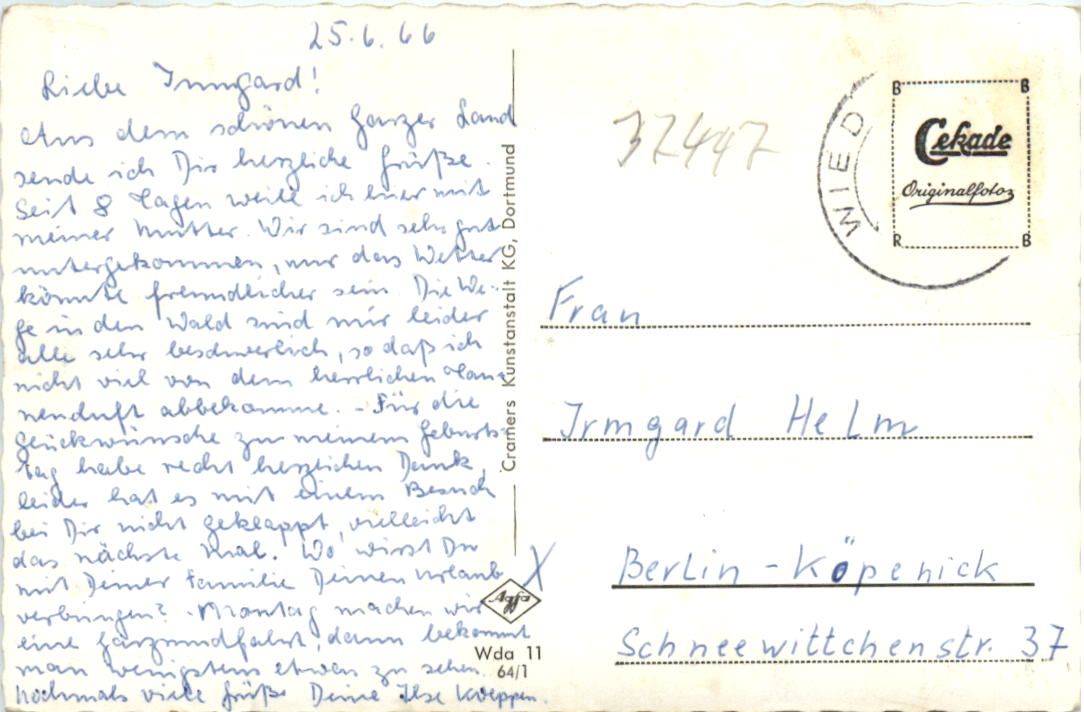 25.6.66
Liebe Irmgard!
Aus dem schönen Harzer Land
sende ich Dir herzliche Grüße.
Seit 8 Tagen weile ich hier mit
meiner Mutter. Wir sind sehr gut
untergekommen, nur das Wetter
könnte freundlicher sein. Die We-
ge in den Wald sind mir leider
alle sehr beschwerlich, so daß ich
nicht viel von dem herrlichen Tan-
nenduft abbekomme. - Für die
Glückwünsche zu meinem Geburts-
tag habe recht herzlichen Dank,
leider hat es mit einem Besuch
bei Dir nicht geklappt, vielleicht
das nächste Mal. Wo wirst Du
mit Deiner Familie Deinen Urlaub
verbringen? - Montag machen wir
eine Harzrundfahrt, dann bekommt
man wenigstens etwas zu sehen.
Nochmals viele Grüße Deine Ilse Koeppen.
Cramers Kunstanstalt KG, Dortmund
Agfa
Wda 11
64/1
37447
WIED
B B
Cekade
Originalfoto
R B
Frau
Irmgard Helm
X
Berlin-Köpenick
Schneewittchenstr. 37